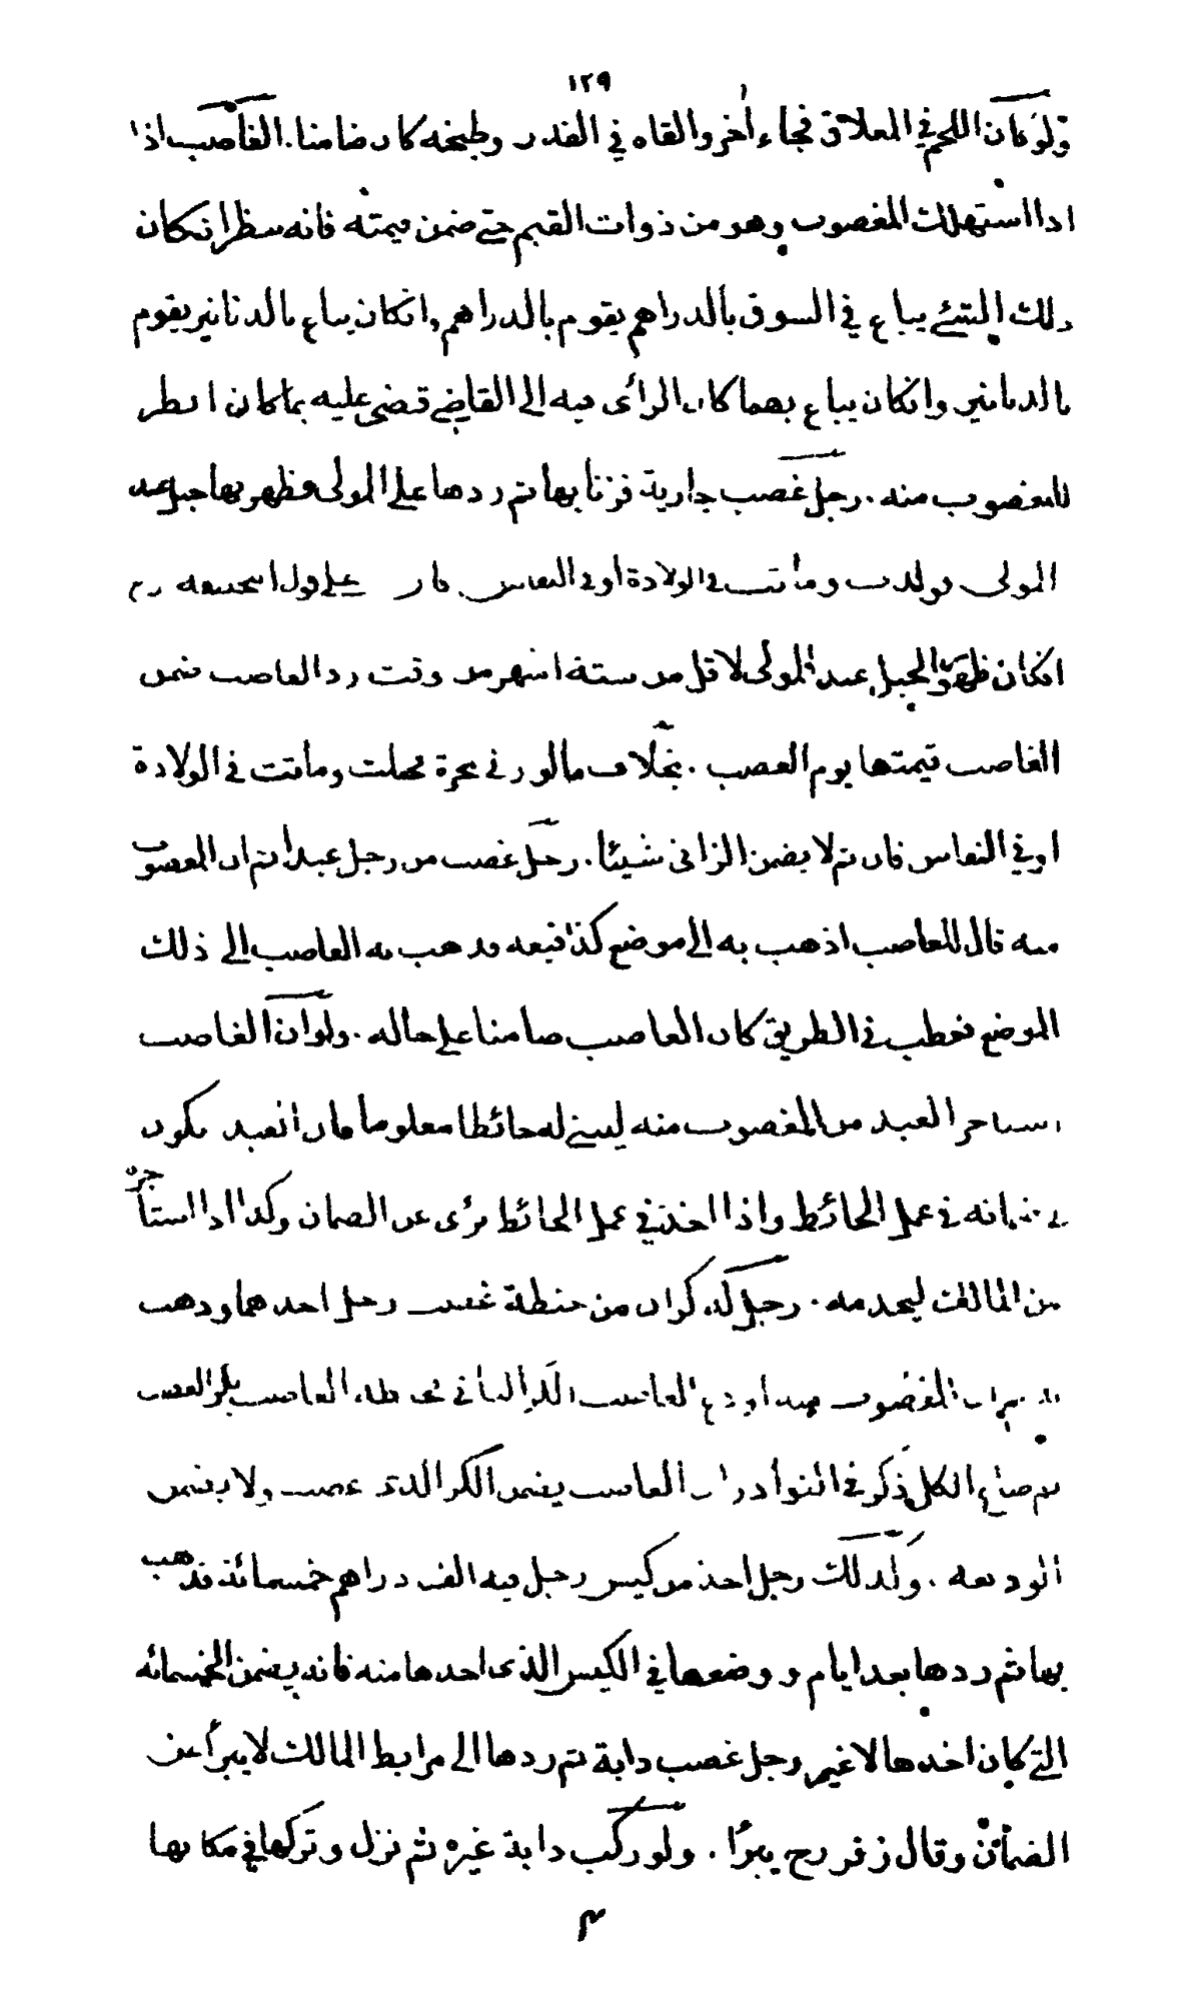 ١٢٩
ولو كان اللحم في المعلاق فجاء آخر والقاه في القدر وطبخه كان ضامنا. الغاصب اذا
ادا استهلك المغصوب وهو من ذوات القيم حتى ضمن قيمته فانه ينظر ان كان
ذلك الشئ يباع في السوق بالدراهم يقوم بالدراهم وانكان يباع بالدنانير يقوم
بالدنانير وانكان يباع بهما كان الرأى فيه الى القاضي قضى عليه بما كان انظر
للمغصوب منه. رجل غصب جارية فزنا بها ثم ردها على المولى فظهر بها حبل عند
المولى فولدت وماتت في الولادة او في النفاس فان على قول ابيحنيفة رح
انكان ظهور الحبل عند المولى لاقل من ستة اشهر من وقت رد الغاصب ضمن
الغاصب قيمتها يوم الغصب. بخلاف ما لو زنى بحرة فحملت وماتت في الولادة
او في النفاس فان ثم لا يضمن الزانى شيئا. رجل غصب من رجل عبدا ثم ان المغصوب
منه قال للغاصب اذهب به الى موضع كذا فبعه فذهب به الغاصب الى ذلك
الموضع فعطب في الطريق كان الغاصب ضامنا على حاله. ولو ان الغاصب
استاجر العبد من المغصوب منه ليبنى له حائطا معلوما فان العبد يكون
في ضمانه في عمل الحائط واذا اخذ في عمل الحائط برئ عن الضمان وكذا اذا استأجره
من المالك ليخدمه. رجل له كران من حنطة غصب رجل احدهما وذهب
المغصوب منه اودع الغاصب الكر الثانى فخلطه الغاصب بكر الغصب
ثم ضاع الكل ذكر في النوادر ان الغاصب يضمن الكر الذى غصب ولا يضمن
الوديعة. وكذلك رجل اخذ من كيس رجل فيه الف دراهم خمسمائة فذهب
بها ثم ردها بعد ايام ووضعها في الكيس الذى اخذها منه فانه يضمن الخمسمائة
التي كان اخذها لا غير رجل غصب دابة ثم ردها الى مرابط المالك لا يبرأ عن
الضمان وقال زفر رح يبرأ. ولو ركب دابة غيره ثم نزل وتركها في مكانها